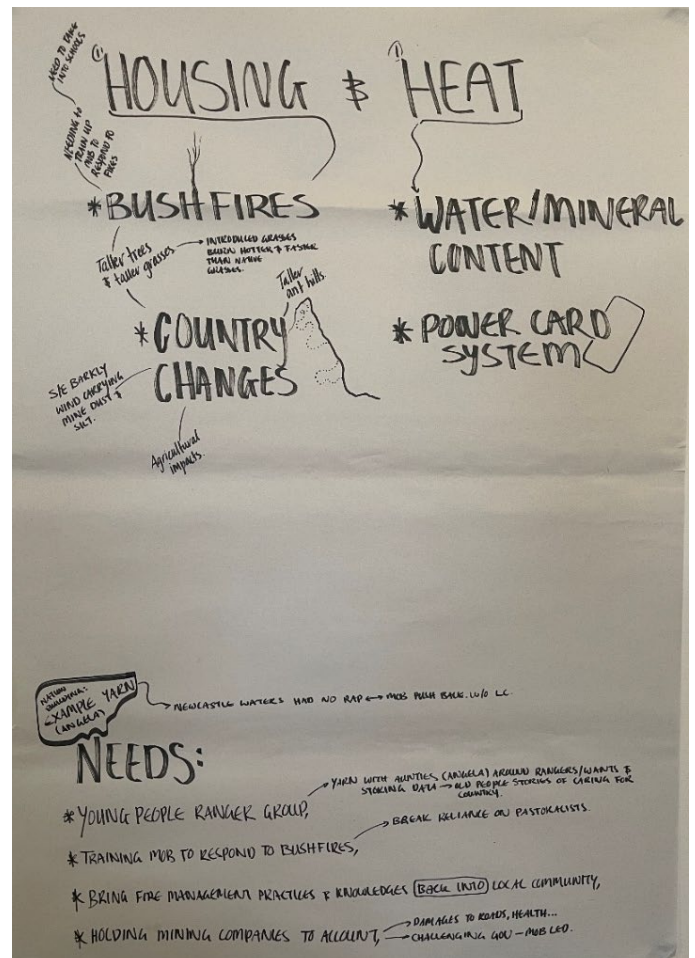 NEED TO TAKE
INTO SCHOOLS
① HOUSING & ① HEAT
NEEDING to
TRAIN UP
MOB TO
RESPOND TO
FIRES
* BUSHFIRES
Taller trees
& taller grasses → INTRODUCED GRASSES
BURN HOTTER & FASTER
THAN NATIVE
GRASSES.
* COUNTRY
CHANGES
Taller
ant hills.
S/E BARKLY
WIND CARRYING
MINE DUST &
SILT.
Agricultural
impacts.
* WATER/MINERAL
CONTENT
* POWER CARD
SYSTEM
NATION
BUILDING:
EXAMPLE YARN
(ANGELA)
→ NEWCASTLE WATERS HAD NO RAP ↔ MOB PUSH BACK. W/O LC.
NEEDS:
* YOUNG PEOPLE RANGER GROUP,
→ YARN WITH AUNTIES (ANGELA) AROUND RANGERS/WANTS &
STORING DATA → OLD PEOPLE STORIES OF CARING FOR
COUNTRY.
* TRAINING MOB TO RESPOND TO BUSHFIRES,
→ BREAK RELIANCE ON PASTORALISTS.
* BRING FIRE MANAGEMENT PRACTICES & KNOWLEDGES BACK INTO LOCAL COMMUNITY,
* HOLDING MINING COMPANIES TO ACCOUNT,
→ DAMAGES TO ROADS, HEALTH...
→ CHALLENGING GOV – MOB LED.